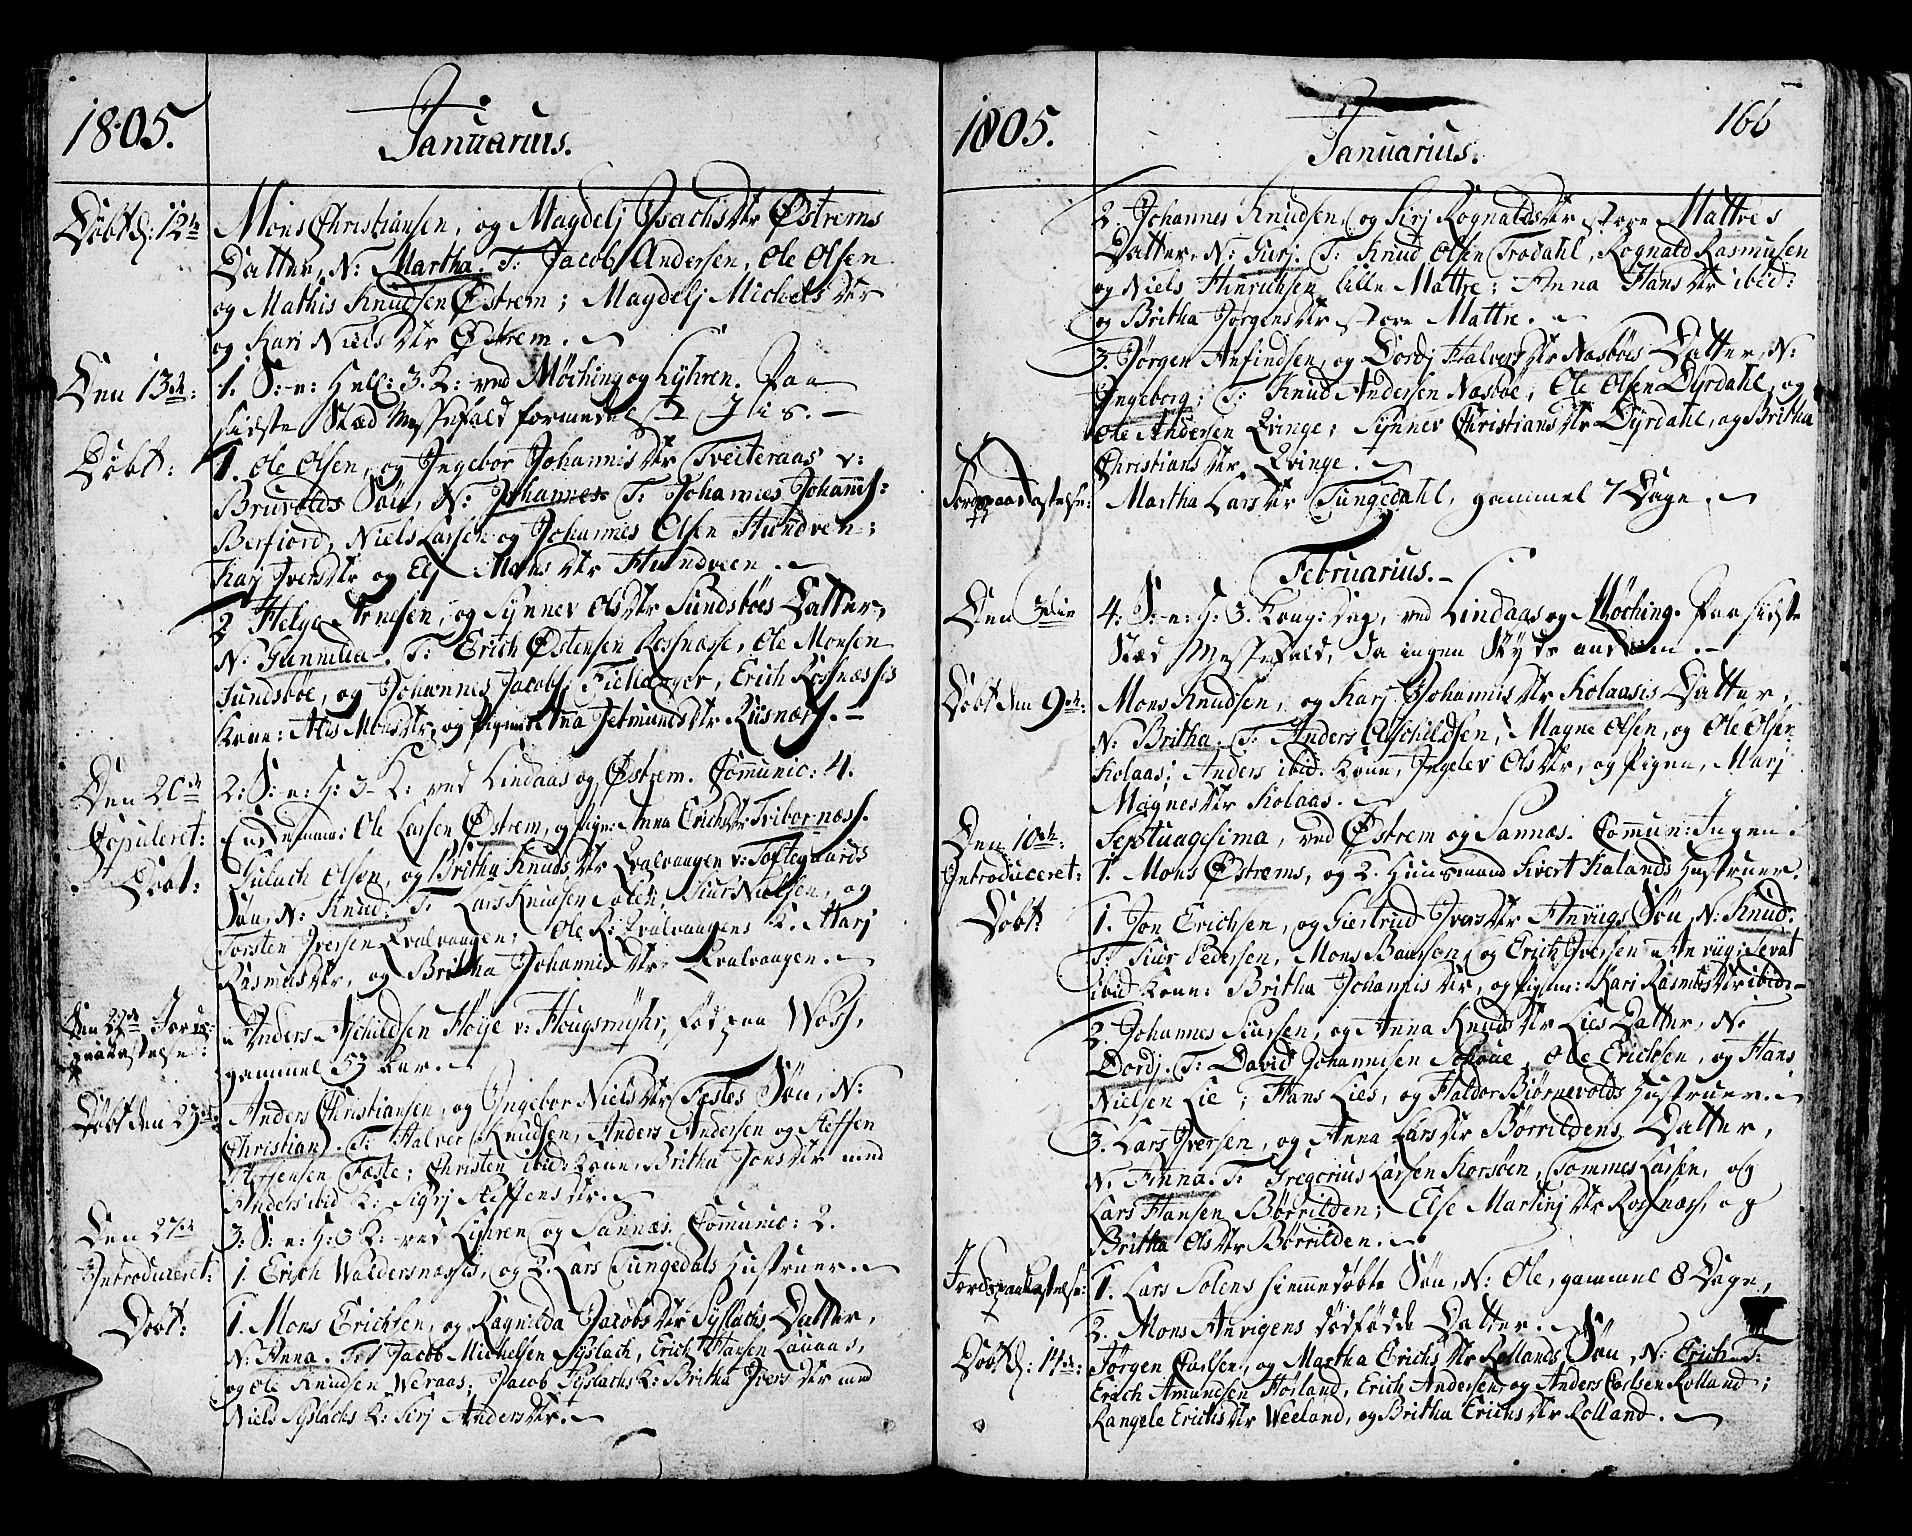 1805. Januarius.
Döbt d: 12te Mons Christiansen, og Magdelj Isachsdtr Østrems
Datter, N: Martha. T: Jacob Andersen, Ole Olsen
og Mathis Knudsen Østrem; Magdelj Michelsdtr
og Kari Nielsdtr Østrem.
Den 13de: 1. S: e: Hell: 3. K: ved Möching og Lyhren. Paa
sidste Stæd Messefald formedelst Iis.
Döbt: 1. Ole Olsen, og Ingebor Johannisdtr Tveiteraas v:
Bruvolds Søn, N: Johannes T: Johannes Johannes:
Berfiord, Niels Larsen og Johannes Olsen Hundven;
Karj Iversdtr og Elj Monsdtr Hundveen.
2 Helge Arnesen, og Synnev Olsdtr Sundsböes Datter,
N: Gunnilda. T: Erich Østensen Rosnæsse, Ole Monsen
Sundsböe, og Johannes Jacobs: Fieldanger, Erich Rosnæsses
Kone: Alis Monsdtr, og Pigen Anna Jetmundsdtr Riisnæss.
Den 20de 2: S: e: H: 3 K: ved Lindaas og Østrem. Communic: 4.
Copuleret: Enkemand: Ole Larsen Østrem, og Pige: Anna Erichsdtr Fribornæss.
Döbt: Gulach Olsen, og Britha Knudsdtr Qvalvaagen v: Toftegaards
Søn, N: Knud: T: Lars Knudsen Solen, Siur Nielsen, og
Torsten Iversen Qvalvaagen; Ole R: Qvalvaagens K. Marj
Rasmusdtr, og Britha Johannisdtr Qvalvaagen.
Den 22de Jords: Anders Aschildsen Höije v: Hougsmyhr, föd paa Woss,
paakastelse: gammel 53 Aar.
Döbt den 23de: Anders Christiansen, og Ingebor Nielsdtr Fæstes Søn, N:
Christian. T: Halver Knudsen, Anders Andersen og Steffen
Steffensen Fæste; Christen ibid: Kone, Britha Jonsdtr med
Anders ibid K: Sigrj Steffensdtr.
Den 27de 3: S: e: H: 3 K: ved Lyhren og Sannæs. Communic: 2.
Introduceret: 1. Erich Waldersnæsses, og 2. Lars Tungedals Hustruer.
Döbt: 1. Mons Erichsen, og Ragnilda Jacobsdtr Syslachs Datter,
N: Anna. T: Jacob Michelsen Syslach, Erich Hansen Lauaas,
og Ole Knudsen Weraas; Jacob Syslachs K: Britha Iversdtr med
Niels Syslachs K: Sirj Andersdtr.
1805. Januarius. 166
2. Johannes Knudsen, og Sirj Rognaldsdtr store Mattres
Datter, N: Gurj. T: Knud Olsen Trodahl, Rognald Rasmusen
og Niels Hinrichsen lille Mattre; Anna Hansdtr ibid:
og Britha Jørgensdtr store Mattre.
3. Jörgen Anfindsen, og Dordj Halversdtr Nasböes Datter, N:
Ingeborg; T: Knud Andersen Nasböe, Ole Olsen Dyrdahl, og
Ole Andersen Qvinge; Synnev Christiansdtr Dyrdahl, og Britha
Christiansdtr Qvinge.
Jordspaakastelse: Martha Larsdtr Tungedahl, gammel 7 Dage.
Februarius.
Den 3die 4: S: e: H: 3. Kong: Dag, ved Lindaas og Möching. Paa sidste
Stæd Messefald, da ingen Skyds ankom.
Döbt den 9de: Mons Knudsen, og Karj Johannisdtr Kolaases Datter,
N: Britha. T: Anders Aschildsen, Magne Olsen, og Ole Olsen
Kolaas; Anders ibid: Kone, Ingelev Olsdtr, og Pigen, Marj
Magnesdtr Kolaas.
Den 10de: Septuagesima, ved Østrem og Sannæs. Commun: Ingen.
Introduceret: 1. Mons Østrems, og 2. Huusmand Sivert Kalands Hustruer.
Döbt: 1. Jon Erichsen, og Giertrud Iversdtr Anvügs Søn, N: Knud.
T: Siur Pedersen, Mons Baarsen, og Erich Iversen Anviig; Sevat
ibid Kone: Britha Johannisdtr, og Pigen: Kari Rasmusdtr ibid:
2. Johannes Siursen, og Anna Knudsdtr Lies Datter, N:
Dordj. T: David Johannesen Schoue, Ole Erichsen, og Hans
Nielsen Lie; Hans Lies, og Haldor Biörnevolds Hustruer.
3. Lars Iversen, og Anna Larsdtr Börrildens Datter,
N: Anna. T: Gregorius Larsen Korsöen, Tommes Larsen, og
Lars Hansen Börrilden; Else Martinjdtr Rosnæss, og
Britha Olsdtr Börrilden.
Jordspaakastelse: 1. Lars Solens hiemmedöbte Søn, N: Ole, gammel 8 Dage,
2. Mons Anvigens dödfödde Datter.
Döbt d: 14de: Jørgen Carlsen, og Martha Erichsdtr Rollands Søn, N: Erich T:
Erich Amundsen Hopland, Erich Andersen, og Anders Carlsen Rolland;
Rangele Erichsdtr Weeland, og Britha Erichsdtr Rolland.